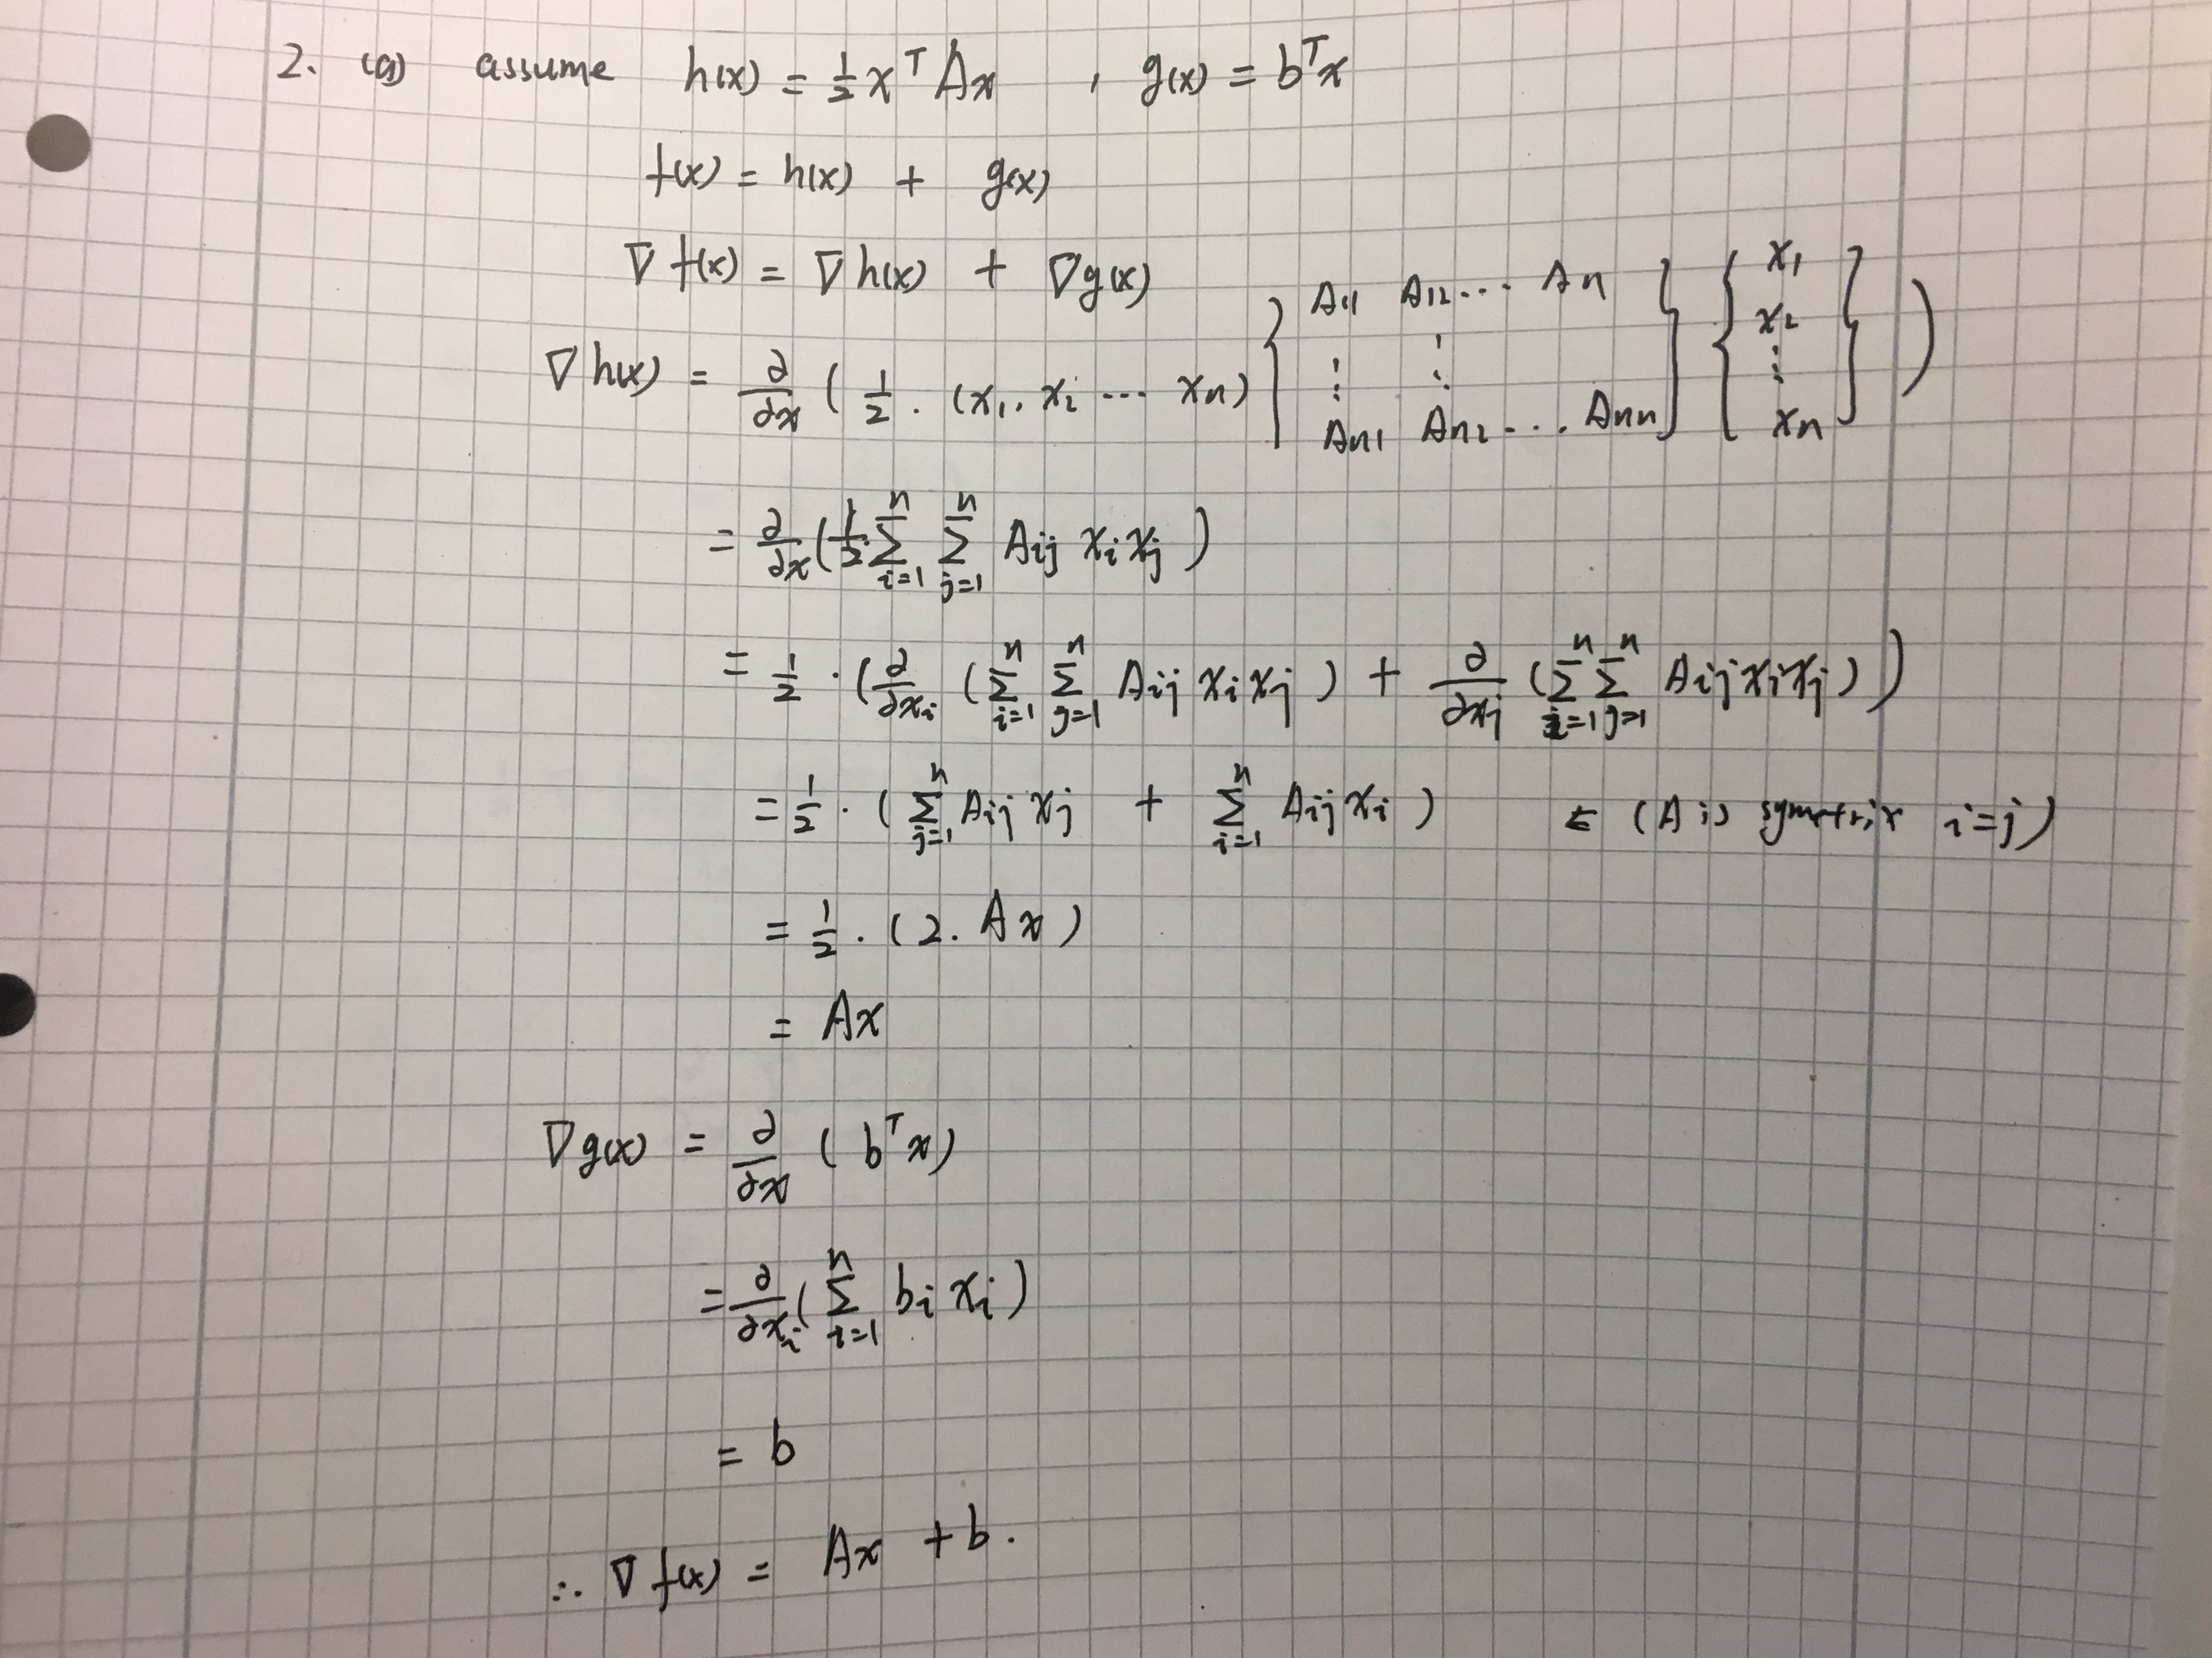 2. (a) assume h(x) = ½ xᵀ Ax , g(x) = bᵀx
f(x) = h(x) + g(x)
∇ f(x) = ∇ h(x) + ∇ g(x)
∇ h(x) = ∂/∂x ( 1/2 · (x₁, x₂ ... xₙ) { A₁₁ A₁₂ ... Aₙ ⋮ ⋮ Aₙ₁ Aₙ₂ ... Aₙₙ } { x₁ x₂ ⋮ xₙ } )
= ∂/∂x ( 1/2 · Σⁿᵢ₌₁ Σⁿⱼ₌₁ Aᵢⱼ xᵢ xⱼ )
= 1/2 · ( ∂/∂xᵢ ( Σⁿᵢ₌₁ Σⁿⱼ₌₁ Aᵢⱼ xᵢ xⱼ ) + ∂/∂xⱼ ( Σⁿᵢ₌₁ Σⁿⱼ₌₁ Aᵢⱼ xᵢ xⱼ ) )
= 1/2 · ( Σⁿⱼ₌₁ Aᵢⱼ xⱼ + Σⁿᵢ₌₁ Aᵢⱼ xᵢ ) ← (A is symetrix i=j)
= 1/2 · (2. Ax)
= Ax
∇g(x) = ∂/∂x ( bᵀ x)
= ∂/∂xᵢ ( Σⁿᵢ₌₁ bᵢ xᵢ )
= b
∴ ∇ f(x) = Ax + b.